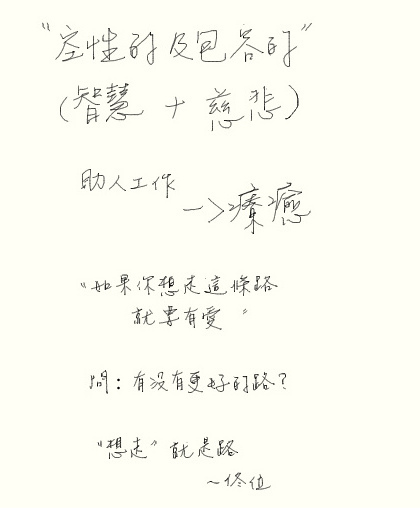 "空性的及包容的"
(智慧 + 慈悲)
助人工作
—>療癒
"如果你想走這條路
就要有愛"
問：有沒有更好的路?
"想走"就是路
~佟位